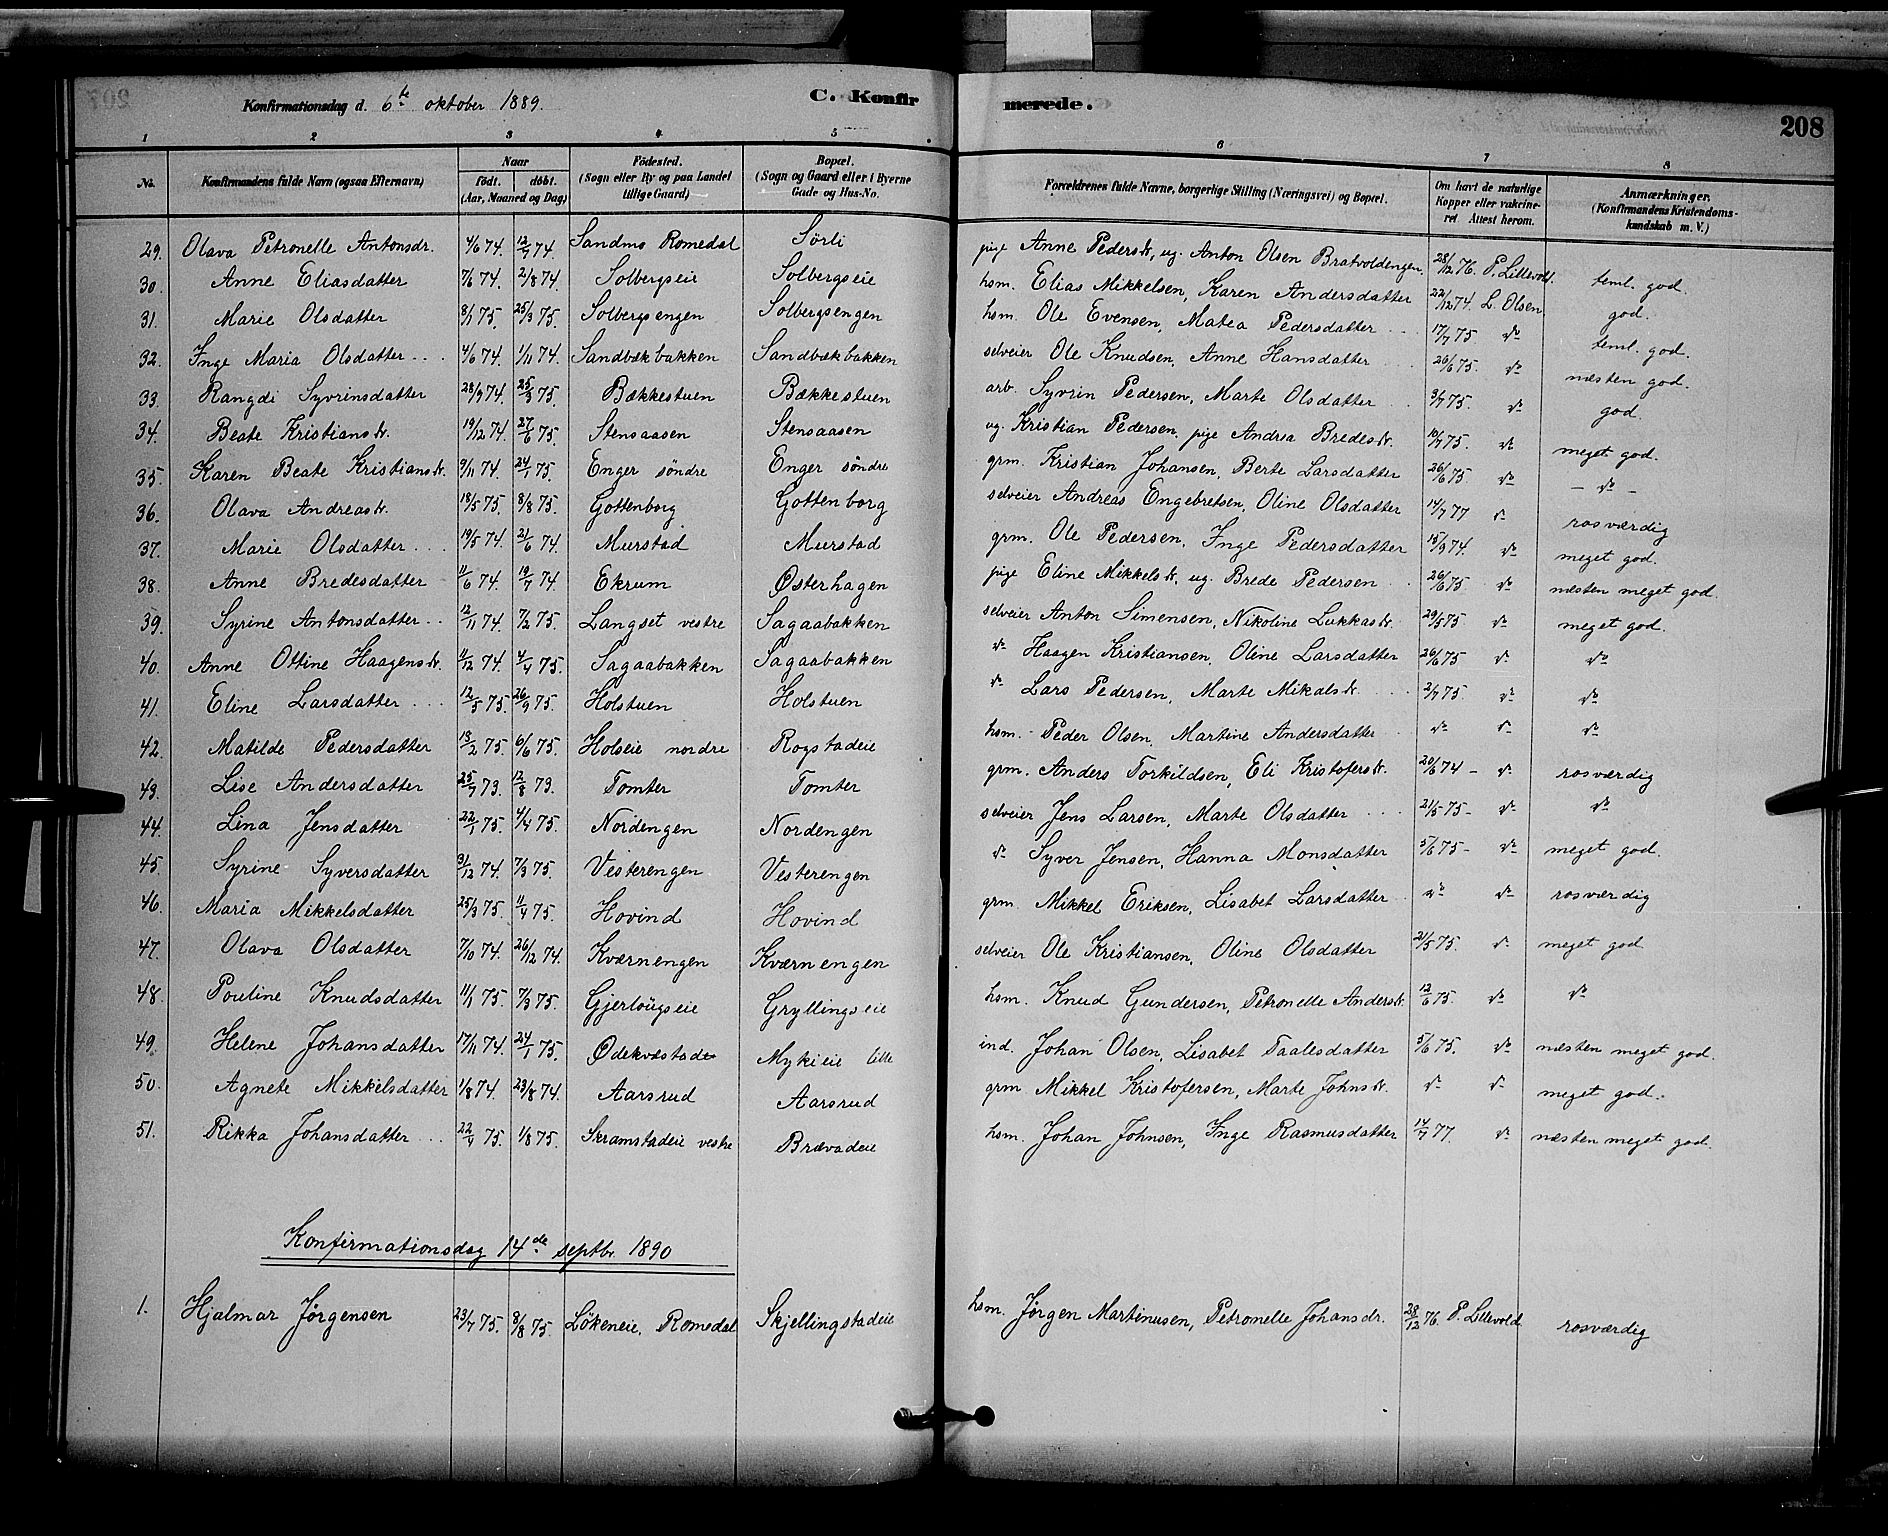 Konfirmationsdag d. 6te oktober 1889. C. Konfirmerede. 208
1 2 3 4 5 6 7 8
No. Konfirmandens fulde Navn (ogsaa Efternavn) Naar födt. döbt. (Aar, Maaned og Dag) Födested. (Sogn eller By og paa Landet tillige Gaard) Bopæl. (Sogn og Gaard eller i Byerne Gade og Hus-No. Forældrenes fulde Navne, borgerlige Stilling (Næringsvei) og Bopæl. Om havt de naturlige Kopper eller vakcineret Attest herom. Anmærkninger. (Konfirmandens Kristendomskundskab m. V.)
29. Olava Petronelle Antonsdr. 4/6 74. 12/7 74. Sandmo Romedal Sørli pige Anne Pedersdr., ug. Anton Olsen Bratvoldengen. 28/12 76. P. Lillevold. teml. god.
30. Anne Eliasdatter 7/6 74. 2/8 74. Solbergseie Solbergseie hsm. Elias Mikkelsen, Karen Andersdatter 22/12 74 L. Olsen god.
31. Marie Olsdatter 8/1 75. 25/3 75. Solbergsengen Solbergsengen hsm. Ole Evensen, Matea Pedersdatter 17/7 75 do teml. god.
32. Inge Maria Olsdatter 4/6 74. 1/11 74. Sandbækbakken Sandbækbakken selveier Ole Knudsen, Anne Hansdatter 26/6 75. do næsten god.
33. Rangdi Syvrinsdatter 28/9 74. 25/3 75. Bækkestuen Bækkestuen arb. Syvrin Pedersen, Marte Olsdatter 3/7 75. do god.
34. Beate Kristiansdr. 19/12 74. 27/6 75. Stensaasen Stensaasen ug. Kristian Pedersen, pige Andrea Bredesdr. 10/7 75. do meget god.
35. Karen Beate Kristiansdr. 9/11 74 24/1 75. Enger söndre Enger söndre grm. Kristian Johansen, Berte Larsdatter 26/6 75 do - do -
36. Olava Andreasdr. 18/5 75. 8/8 75. Gottenborg Gottenborg selveier Andreas Engebretsen, Oline Olsdatter 14/7 77 do rosværdig
37. Marie Olsdatter 19/5 74. 21/6 74. Murstad Murstad grm. Ole Pedersen, Inge Pedersdatter 15/9 74. do meget god.
38. Anne Bredesdatter 11/6 74. 19/7 74. Ekrum Østerhagen pige Eline Mikkelsdr., ug. Brede Pedersen 26/6 75 do næsten meget god.
39. Syrine Antonsdatter 12/11 74. 7/2 75. Langset vestre Sagaabakken selveier Anton Simensen, Nikoline Lukkasdr. 29/5 75 do meget god.
40. Anne Ottine Haagensdr. 11/12 74. 4/4 75. Sagaabakken Sagaabakken do Haagen Kristiansen, Oline Larsdatter 26/6 75 do do
41. Eline Larsdatter 12/5 75. 26/9 75. Holstuen Holstuen do Lars Pedersen, Marte Mikalsdr. 2/7 75. do do
42. Matilde Pedersdatter 13/2 75 6/6 75. Holseie nordre Rogstadeie hsm. Peder Olsen, Martine Andersdatter do do do
43. Lise Andersdatter 25/7 73. 12/8 73. Tomter Tomter grm. Anders Torkildsen, Eli Kristofersdr. 20/6 74 - do rosværdig
44. Lina Jensdatter 22/1 75. 4/4 75. Nordengen Nordengen selveier Jens Larsen, Marte Olsdatter 21/5 75 - do do
45. Syrine Syversdatter 31/12 74. 7/3 75. Vesterengen Vesterengen do Syver Jensen, Hanna Monsdatter 5/6 75 - do meget god.
46. Maria Mikkelsdatter 25/3 75. 11/4 75. Hovind Hovind grm. Mikkel Eriksen, Lisabet Larsdatter do do rosværdig
47. Olava Olsdatter 7/10 74. 26/12 74. Kværnengen Kværnengen selveier Ole Kristiansen, Oline Olsdatter 21/5 75. do meget god
48. Pouline Knudsdatter 11/1 75. 7/3 75. Gjerlöugseie Gryllingseie hsm. Knud Gundersen, Petronelle Andersdr. 12/6 75. do do
49. Helene Johansdatter 17/11 74. 24/1 75. Ødekvæstade Mykieie lille ind. Johan Olsen, Lisabet Paalesdatter 5/6 75. do næsten meget god.
50. Agnete Mikkelsdatter 1/8 74. 23/8 74. Aarsrud Aarsrud grm Mikkel Kristofersen, Marte Johnsdr. do do meget god.
51. Rikka Johansdatter 22/4 75. 1/8 75. Skramstadeie vestre Brævadeie hsm. Johan Johnsen, Inge Rasmusdatter 14/7 77 do næsten meget god.
Konfirmationsdag 14de septbr. 1890
1. Hjalmar Jørgensen 23/7 75. 8/8 75. Lökeneie, Romedal Skjellingstadeie hsm. Jørgen Martinusen, Petronelle Johansdr. 28/12 76. P. Lillevold. rosværdig